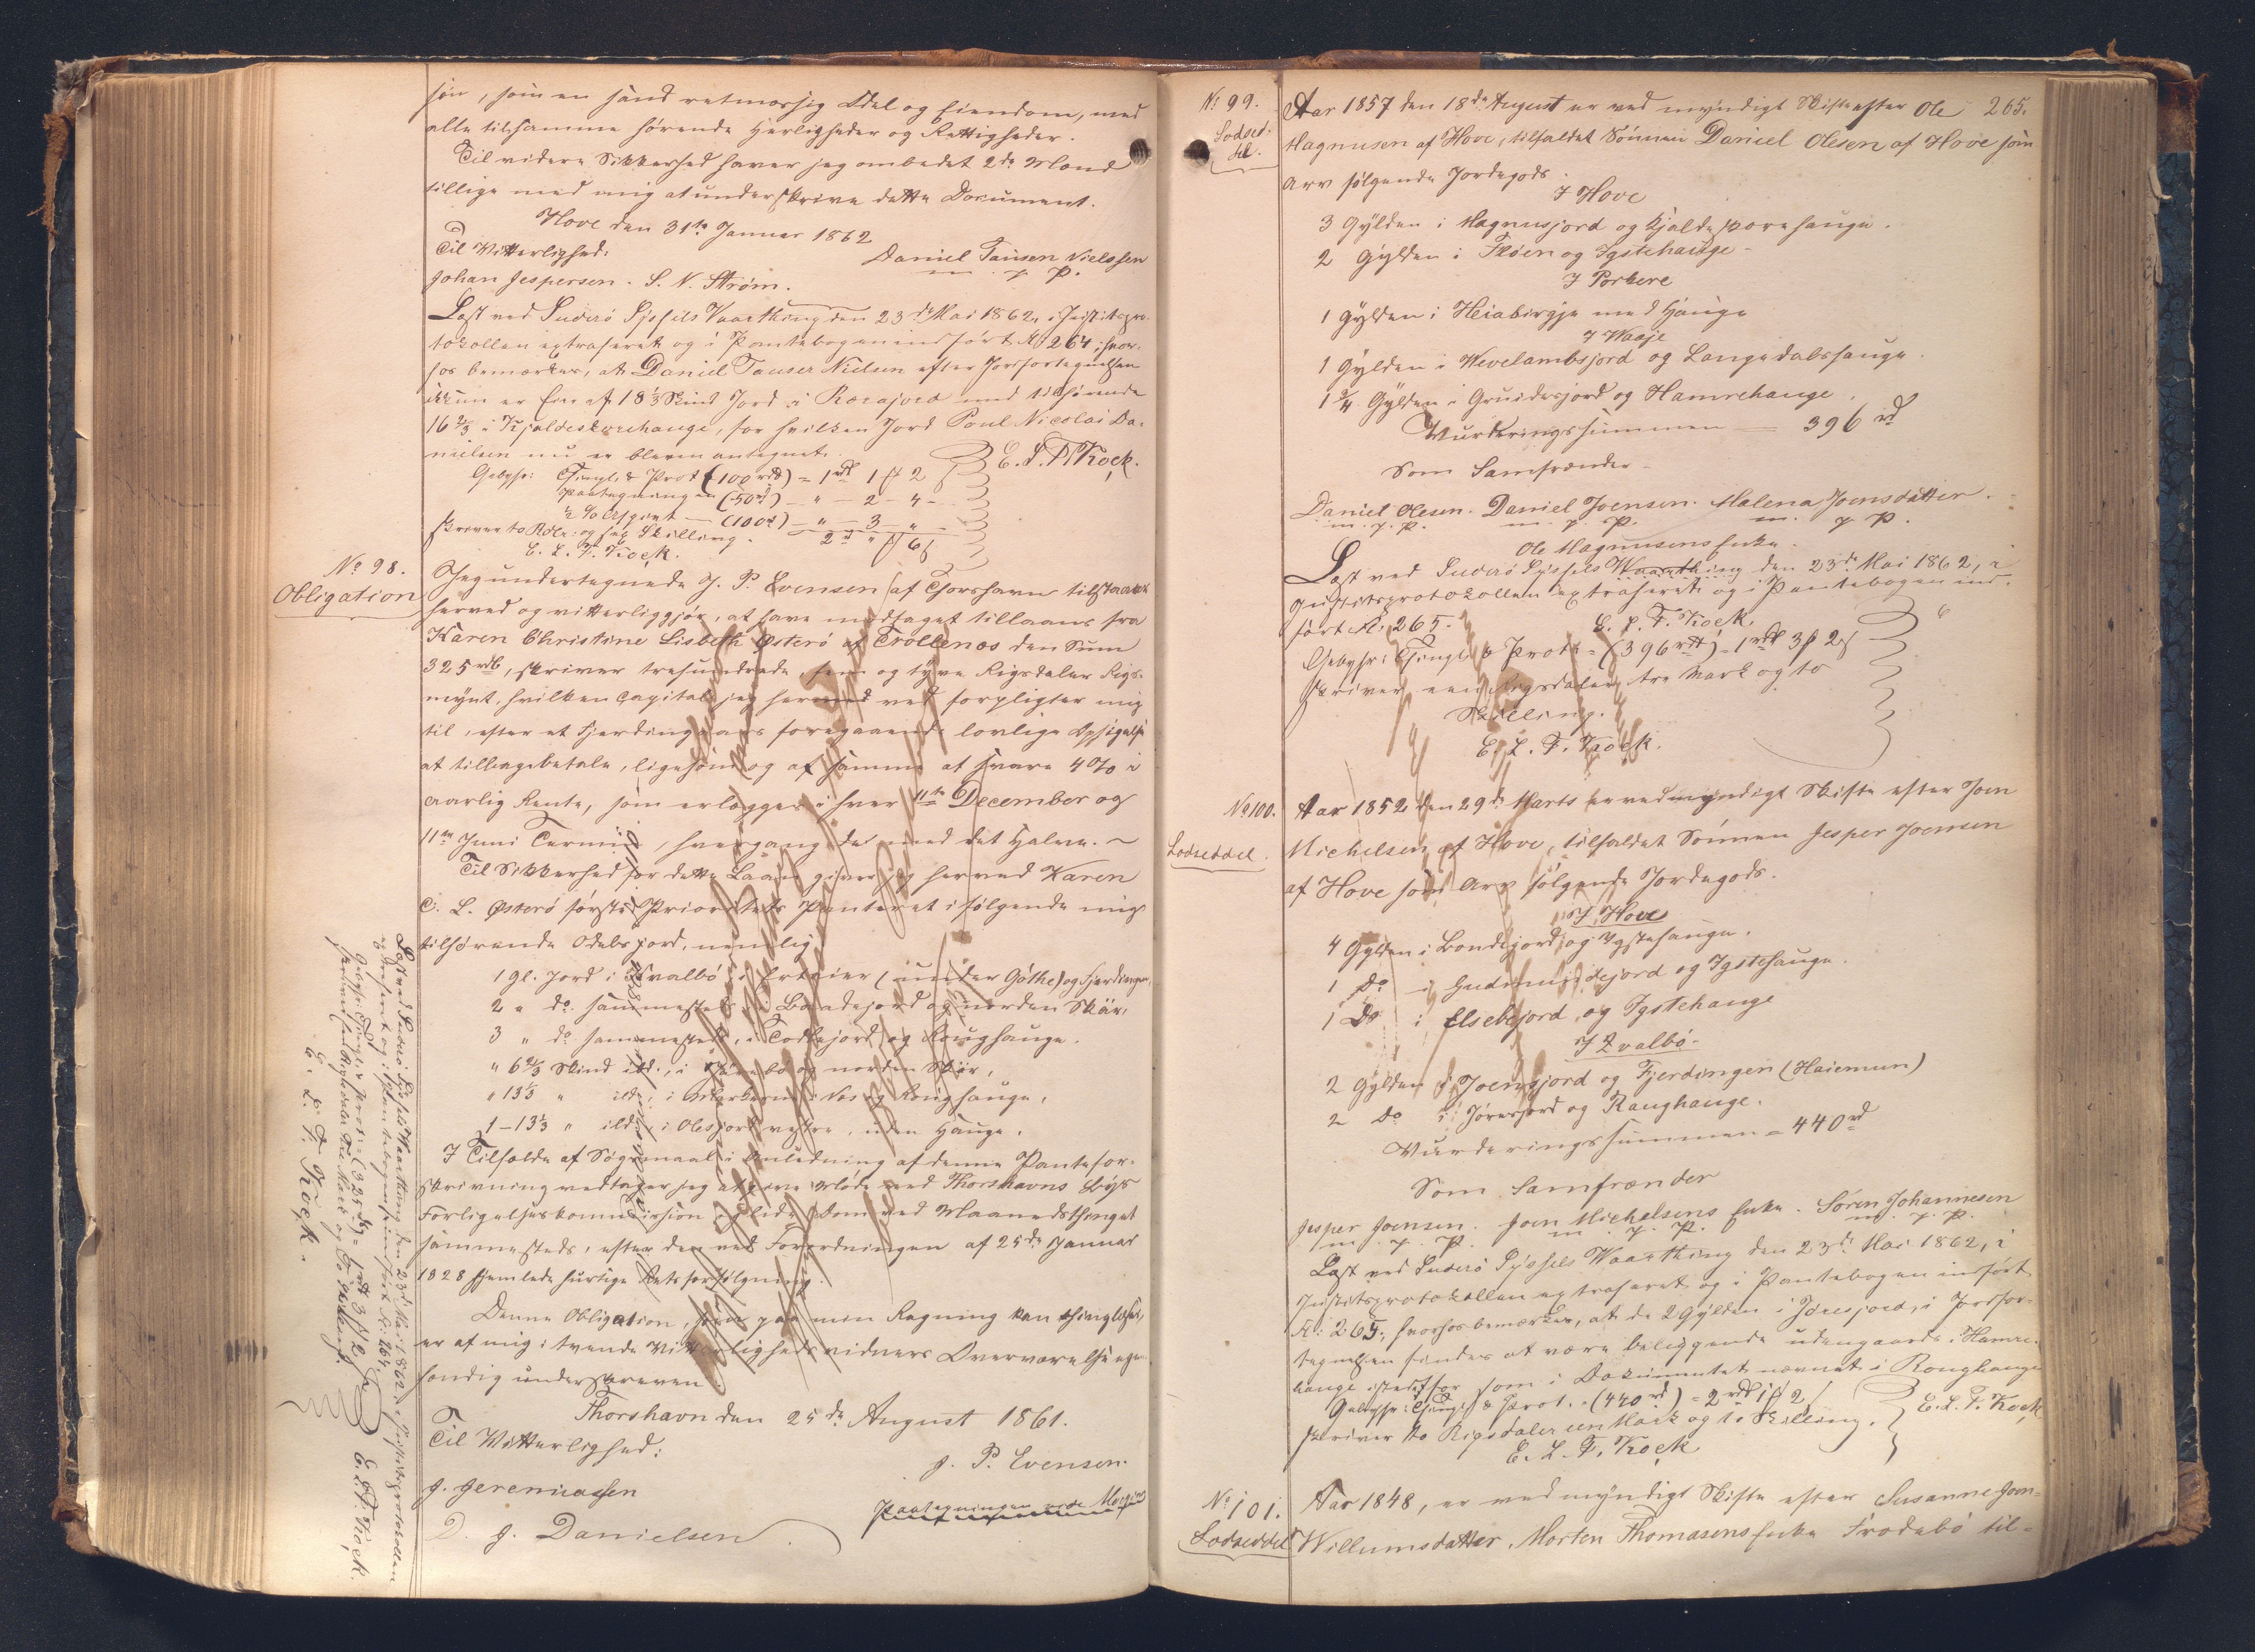 søn, som en sand retmæssig Odel og Eiendom, med
alle tilsamme hørende Herligheder og Rettigheder.
Til videre Sikkerhed haver jeg ombedet 2de Mænd
tillige med mig at underskrive dette Document.
Hove den 31te Januar 1862
Til Vitterlighed: Daniel Tausen Nielssen
Johan Jespersen. S. N. Strøm. m. p.
Læst ved Suderø Syssels Vaarthing den 23de Mai 1862, i Justitspro-
tokollen extraheret og i Pantebogen indført Fol: 264, hvor-
hos bemærkes, at Daniel Tauser Nielsen efter Jordfortegnelsen
ikkun er Eier af 18 1/3 Skind Jord i Rærajord med tilhørende
16 2/3 i Kjaldeskorehauge, for hvilken Jord Poul Nicolai Da-
nielsen nu er bleven antegnet.
E. L. T. Kock.
Gebyhr: Thingl. & Prot (100 rd) = 1 rd 1 ß 2
Paategningen (50 rd) - " - 2 - 4 -
1/2 % Afgivt - (100 rd) - " - 3 - " -
skriver to Rdlr: og sex Skilling. 2 rd " 6 ß
E. L. T. Kock.
No 98.
Obligation
Jeg undertegnede J. P. Evensen af Thorshavn tilstaaer
herved og vitterliggjør, at have modtaget tillaans fra
Karen Christine Lisbeth Østerø af Trollenæs den Sum
325 rd, skriver trehundrede, fem og tyve Rigsdaler Rigs-
mynt, hvilken Capital jeg herved forpligter mig
til, efter et Fjerdingaars foregaaende lovlige Opsigelse
at tilbagebetale, ligesom og af samme at svare 4 % i
aarlig Rente, som erlægges i hver 11te December og
11te Juni Termin, hvergang med det Halve. ~
Til Sikkerhed for dette Laan giver jeg herved Karen
C. L. Østerø første Prioritets Panteret i følgende mig
tilhørende Odelsjord, nemlig
1 Gl. Jord i Hvalbø (under Gøthe) og Fjerdingen,
2 " do sammesteds i Bondejord og norden Skär,
3 " do sammesteds, i Todtajord og Roughauge.
" 6 2/3 Skind ibd., i og norden Skär,
" 13 1/3 " ibd. i Næs og Roughauge,
1 - 13 1/3 " ibd. i Olesjord vestre, uden Hauge.
I Tilfælde af Søgsmaal i Anledning af denne Pantefor-
skrivning vedtager jeg at give Møde ved Thorshavns Byes
Forligelseskommission og lide Dom ved Maanedsthinget
sammesteds, efter den ved Forordningen af 25de Januar
1828 hjemlede hurtige Retsforfølgning.
Denne Obligation, som paa min Regning kan thinglæses,
er af mig i tvende Vitterlighedsvidners Overværelse egen-
hændig underskreven
Thorshavn den 25de August 1861.
Til Vitterlighed:
J. P. Evensen.
J. Jeremiassen
D. J. Danielsen
Paategningen vide Margin
Læst ved Suderø Syssels Vaarthing den 23de Mai 1862, i Justitsprotokollen
extraheret og i Pantebogen indført Fol: 264.
E. L. T. Kock.
Gebyhr: Thingl. & Prot: (325 rd) = 1 rd 3 ß 2
skriver een Rigsdaler Tre Mark og To Skilling.
E. L. T. Kock.
265.
No 99.
Lodsed-
del.
Aar 1857 den 18de August er ved myndigt Skifte efter Ole
Magnusen af Hove, tilfaldet Sønnen Daniel Olesen af Hove som
Arv følgende Jordegods.
I Hove
3 Gylden i Magnusjord og Kjaldeskorehauge.
2 Gylden i Fløen og Ygstehauge -
I Porkere
1 Gylden i Heiabirgje med Hauge
I Waaje
1 Gylden i Wevelambsjord og Langedalshauge.
1 3/4 Gylden i Gruidesjord og Hamrehauge.
Wurderingssummen - 396 rd
Som Samfrænder -
Daniel Olesen. Daniel Joensen. Malena Joensdatter.
m. p. m. p. m. p.
Ole Magnusens Enke.
Læst ved Suderø Syssels Waarthing den 23de Mai 1862, i
Justitsprotokollen extraheret og i Pantebogen ind-
ført Fol: 265.
E. L. T. Kock.
Gebyhr: Thingl. & Prot = (396 rd) = 1 rd 3 ß 2
skriver een Rigsdaler tre Mark og to
Skilling.
E. L. T. Kock.
No 100.
Lodseddel.
Aar 1852 den 29de Marts er ved myndigt Skifte efter Joen
Michelsen af Hove, tilfaldet Sønnen Jesper Joensen
af Hove som Arv følgende Jordegods.
I Hove
4 Gylden i Bondejord og Ygstehauge.
1 Do i Gudmundejord og Ygstehauge.
1 Do i Elsebejord og Ygstehauge
I Qvalbø -
2 Gylden i Joensjord og Fjerdingen (Haiemun)
2 Do i Jøresjord og Raughauge.
Vurderingssummen = 440 rd
Som Samfrænder
Jesper Joensen. Joen Michelsens Enke. Søren Johannesen
m. p. m. p. m. p.
Læst ved Suderø Syssels Waarthing den 23de Mai 1862, i
Justitsprotokollen extraheret og i Pantebogen indført
Fol: 265, hvorhos bemærkes, at de 2 Gylden i Jøresjord, i Jordfor-
tegnelsen findes at være beliggende udengaards i Hamre-
hauge istedetfor som i Dokumentet nævnet i Roughauge
Gebyhr: Thingl & Prot. (440 rd) = 2 rd 1 ß 2
E. L. T. Kock
skriver to Rigsdaler een Mark og to Skilling.
E. L. T. Kock
No 101.
Lodseddel
Aar 1848, er ved myndigt Skifte efter Susanne Joen-
Willumsdatter, Morten Thomasens Enke Frodebø til-